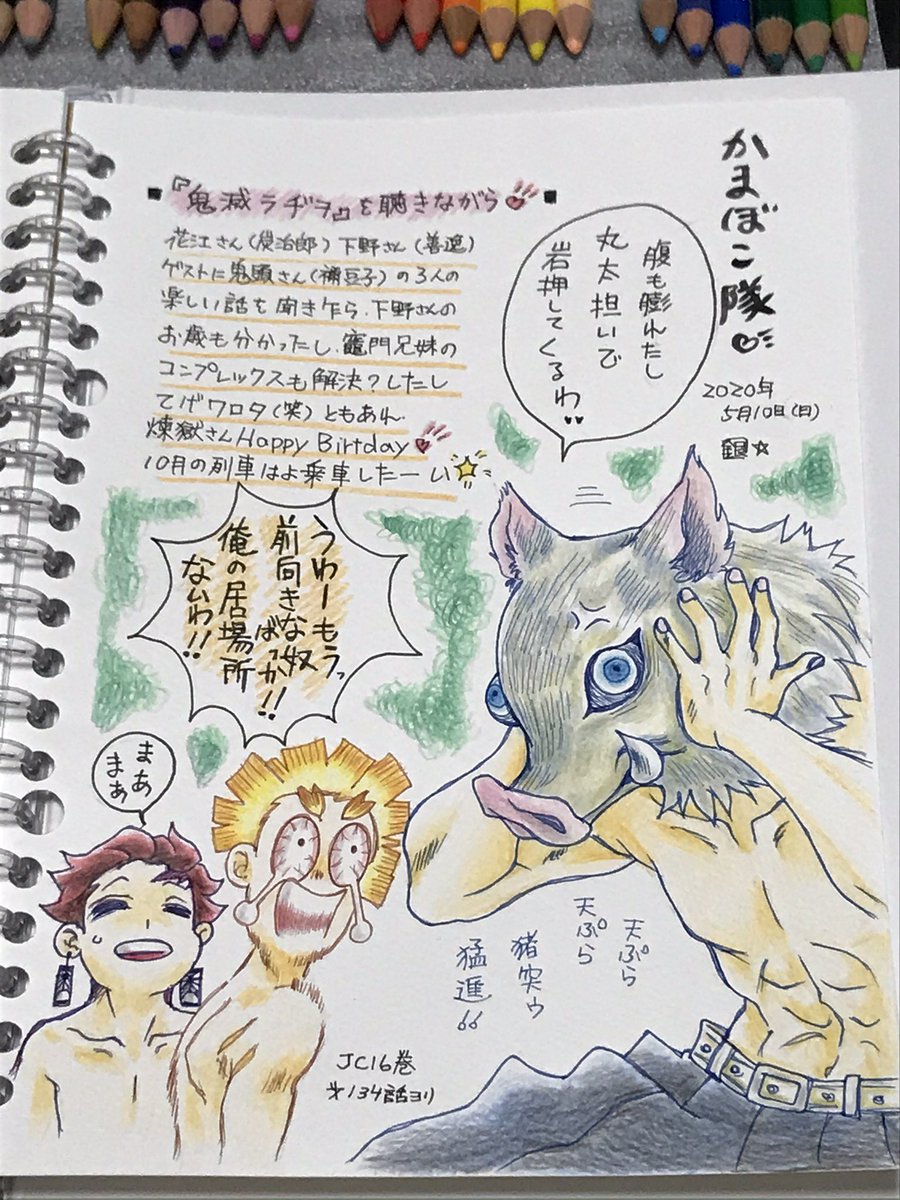 かまぼこ隊
2020年
5月10日(日)
銀☆
■『鬼滅ラヂヲ』を聴きながら■
花江さん(炭治郎)下野さん(善逸)
ゲストに鬼頭さん(禰豆子)の3人の
楽しい話を聞き乍ら、下野さんの
お歳も分かったし、竈門兄妹の
コンプレックスも解決?したし
てげワロタ(笑)ともあれ、
煉獄さんHappy Birtday
10月の列車はよ乗車したーい
腹も膨れたし
丸太担いで
岩押してくるわ
うわーもうっ
前向きな奴
ばっか!!
俺の居場所
ないわ!!
まあ
まぁ
天ぷら
天ぷら
猪突ゥ
猛進
JC16巻
オ134話ヨリ